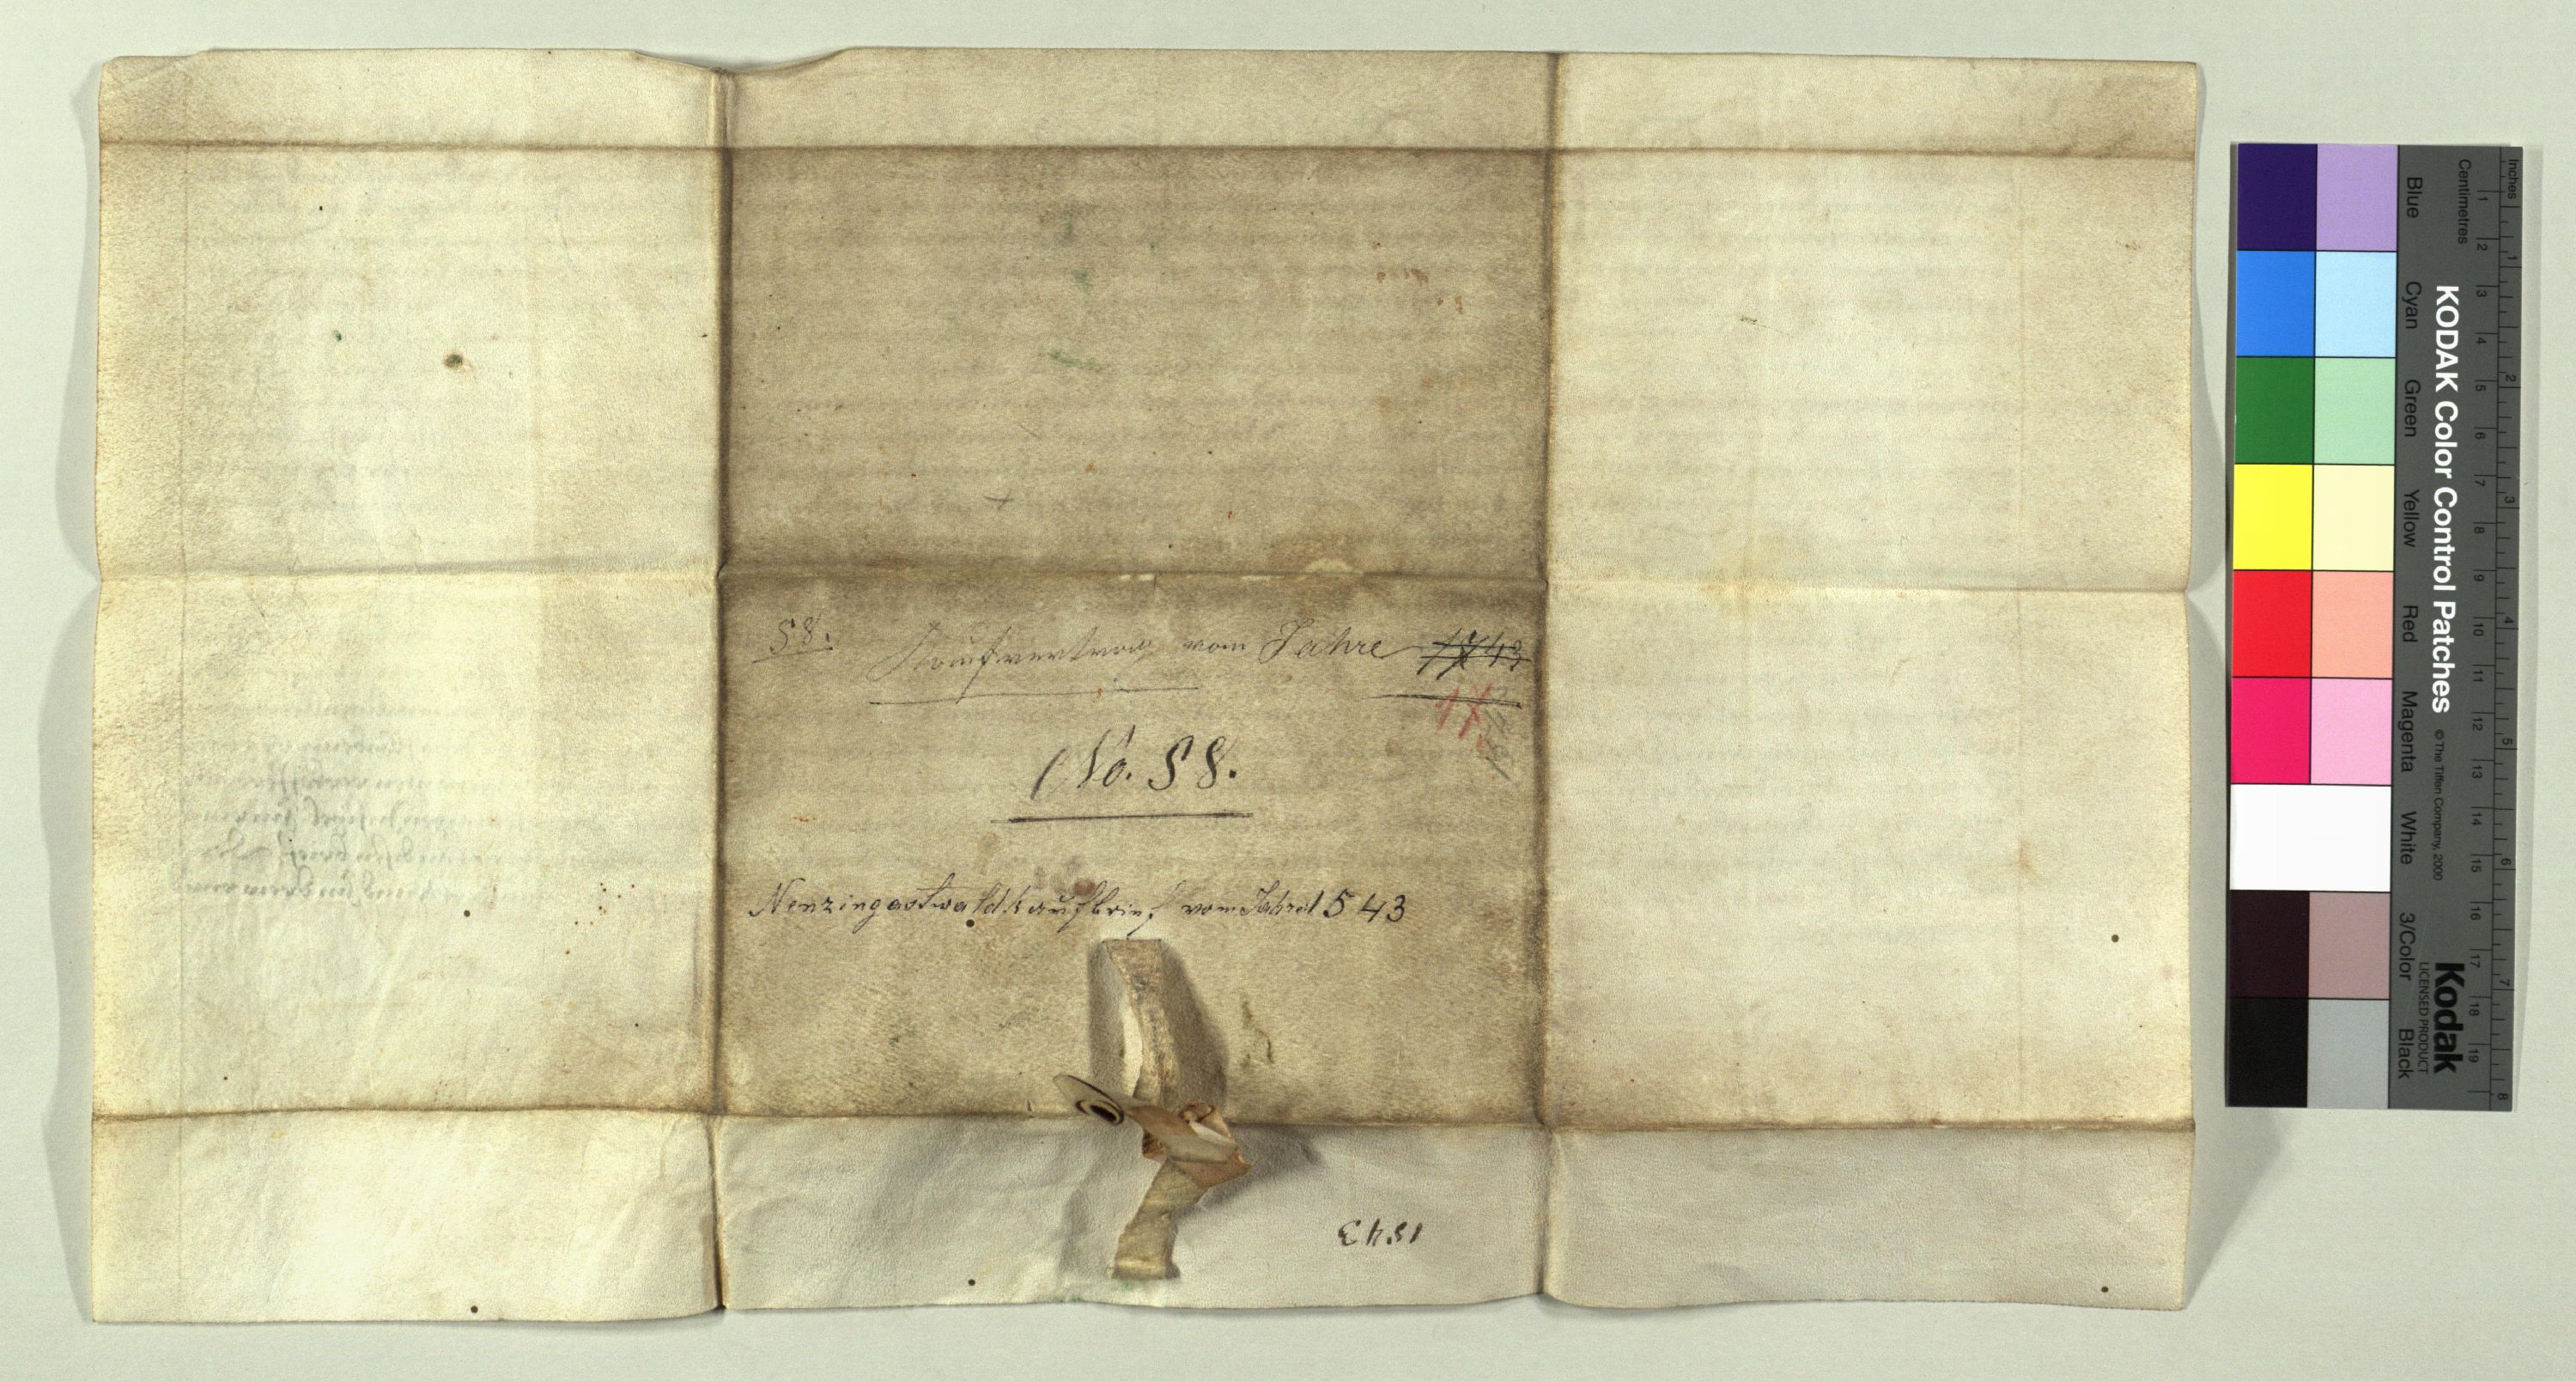 58. Kaufvertrag vom Jahre 1743
17
1543
No. 58.
Nenzingastwaldkaufbrief vom Jahre 1543
1543
Inches
Centimetres
1 2 3 4 5 6 7 8 9 10 11 12 13 14 15 16 17 18 19
1 2 3 4 5 6 7 8
KODAK Color Control Patches © The Tiffen Company, 2000
Kodak
LICENSED PRODUCT
Blue Cyan Green Yellow Red Magenta White 3/Color Black